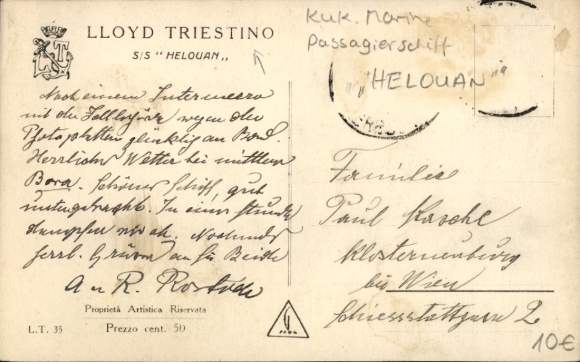 LLOYD TRIESTINO
S/S "HELOUAN"
K.u.K. Marine
Passagierschiff
"HELOUAN"
Nach einem Intermezzo
mit der wegen der
Photoplatten glücklich an Bord.
Herrliches Wetter bei mittlerer
Bora. Schönes Schiff, gut
untergebracht. In einer Stunde
dampfen wir ab. Nochmals
herzl. Grüsse an Sie Beide
R.
Familie
Paul
Klosterneuburg
bei Wien
Schiessstattgasse 2
Proprietà Artistica Riservata
L.T. 35 Prezzo cent. 50
10€